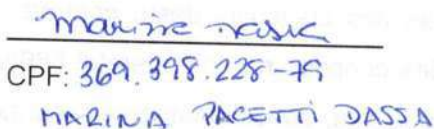 CPF: 369.398.228-79
MARINA PACETTI DASSA